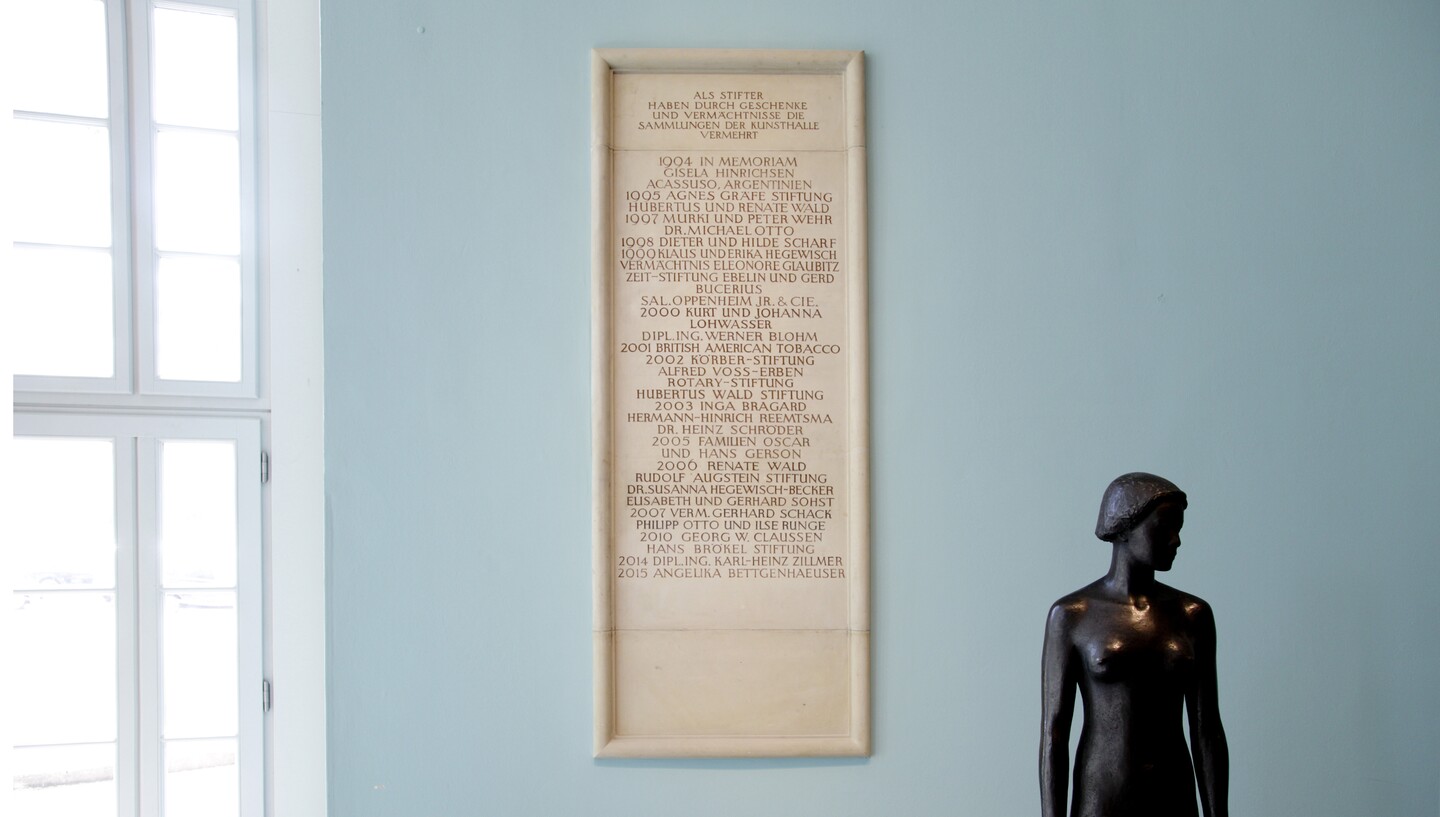 ALS STIFTER
HABEN DURCH GESCHENKE
UND VERMÄCHTNISSE DIE
SAMMLUNGEN DER KUNSTHALLE
VERMEHRT
1994 IN MEMORIAM
GISELA HINRICHSEN
ACASSUSO, ARGENTINIEN
1995 AGNES GRÄFE STIFTUNG
HUBERTUS UND RENATE WALD
1997 MURKI UND PETER WEHR
DR. MICHAEL OTTO
1998 DIETER UND HILDE SCHARF
1999 KLAUS UND ERIKA HEGEWISCH
VERMÄCHTNIS ELEONORE GLAUBITZ
ZEIT-STIFTUNG EBELIN UND GERD
BUCERIUS
SAL. OPPENHEIM JR. & CIE.
2000 KURT UND JOHANNA
LOHWASSER
DIPL. ING. WERNER BLOHM
2001 BRITISH AMERICAN TOBACCO
2002 KÖRBER-STIFTUNG
ALFRED VOSS-ERBEN
ROTARY-STIFTUNG
HUBERTUS WALD STIFTUNG
2003 INGA BRAGARD
HERMANN-HINRICH REEMTSMA
DR. HEINZ SCHRÖDER
2005 FAMILIEN OSCAR
UND HANS GERSON
2006 RENATE WALD
RUDOLF AUGSTEIN STIFTUNG
DR. SUSANNA HEGEWISCH-BECKER
ELISABETH UND GERHARD SOHST
2007 VERM. GERHARD SCHACK
PHILIPP OTTO UND ILSE RUNGE
2010 GEORG W. CLAUSSEN
HANS BRÖKEL STIFTUNG
2014 DIPL. ING. KARL-HEINZ ZILLMER
2015 ANGELIKA BETTGENHAEUSER